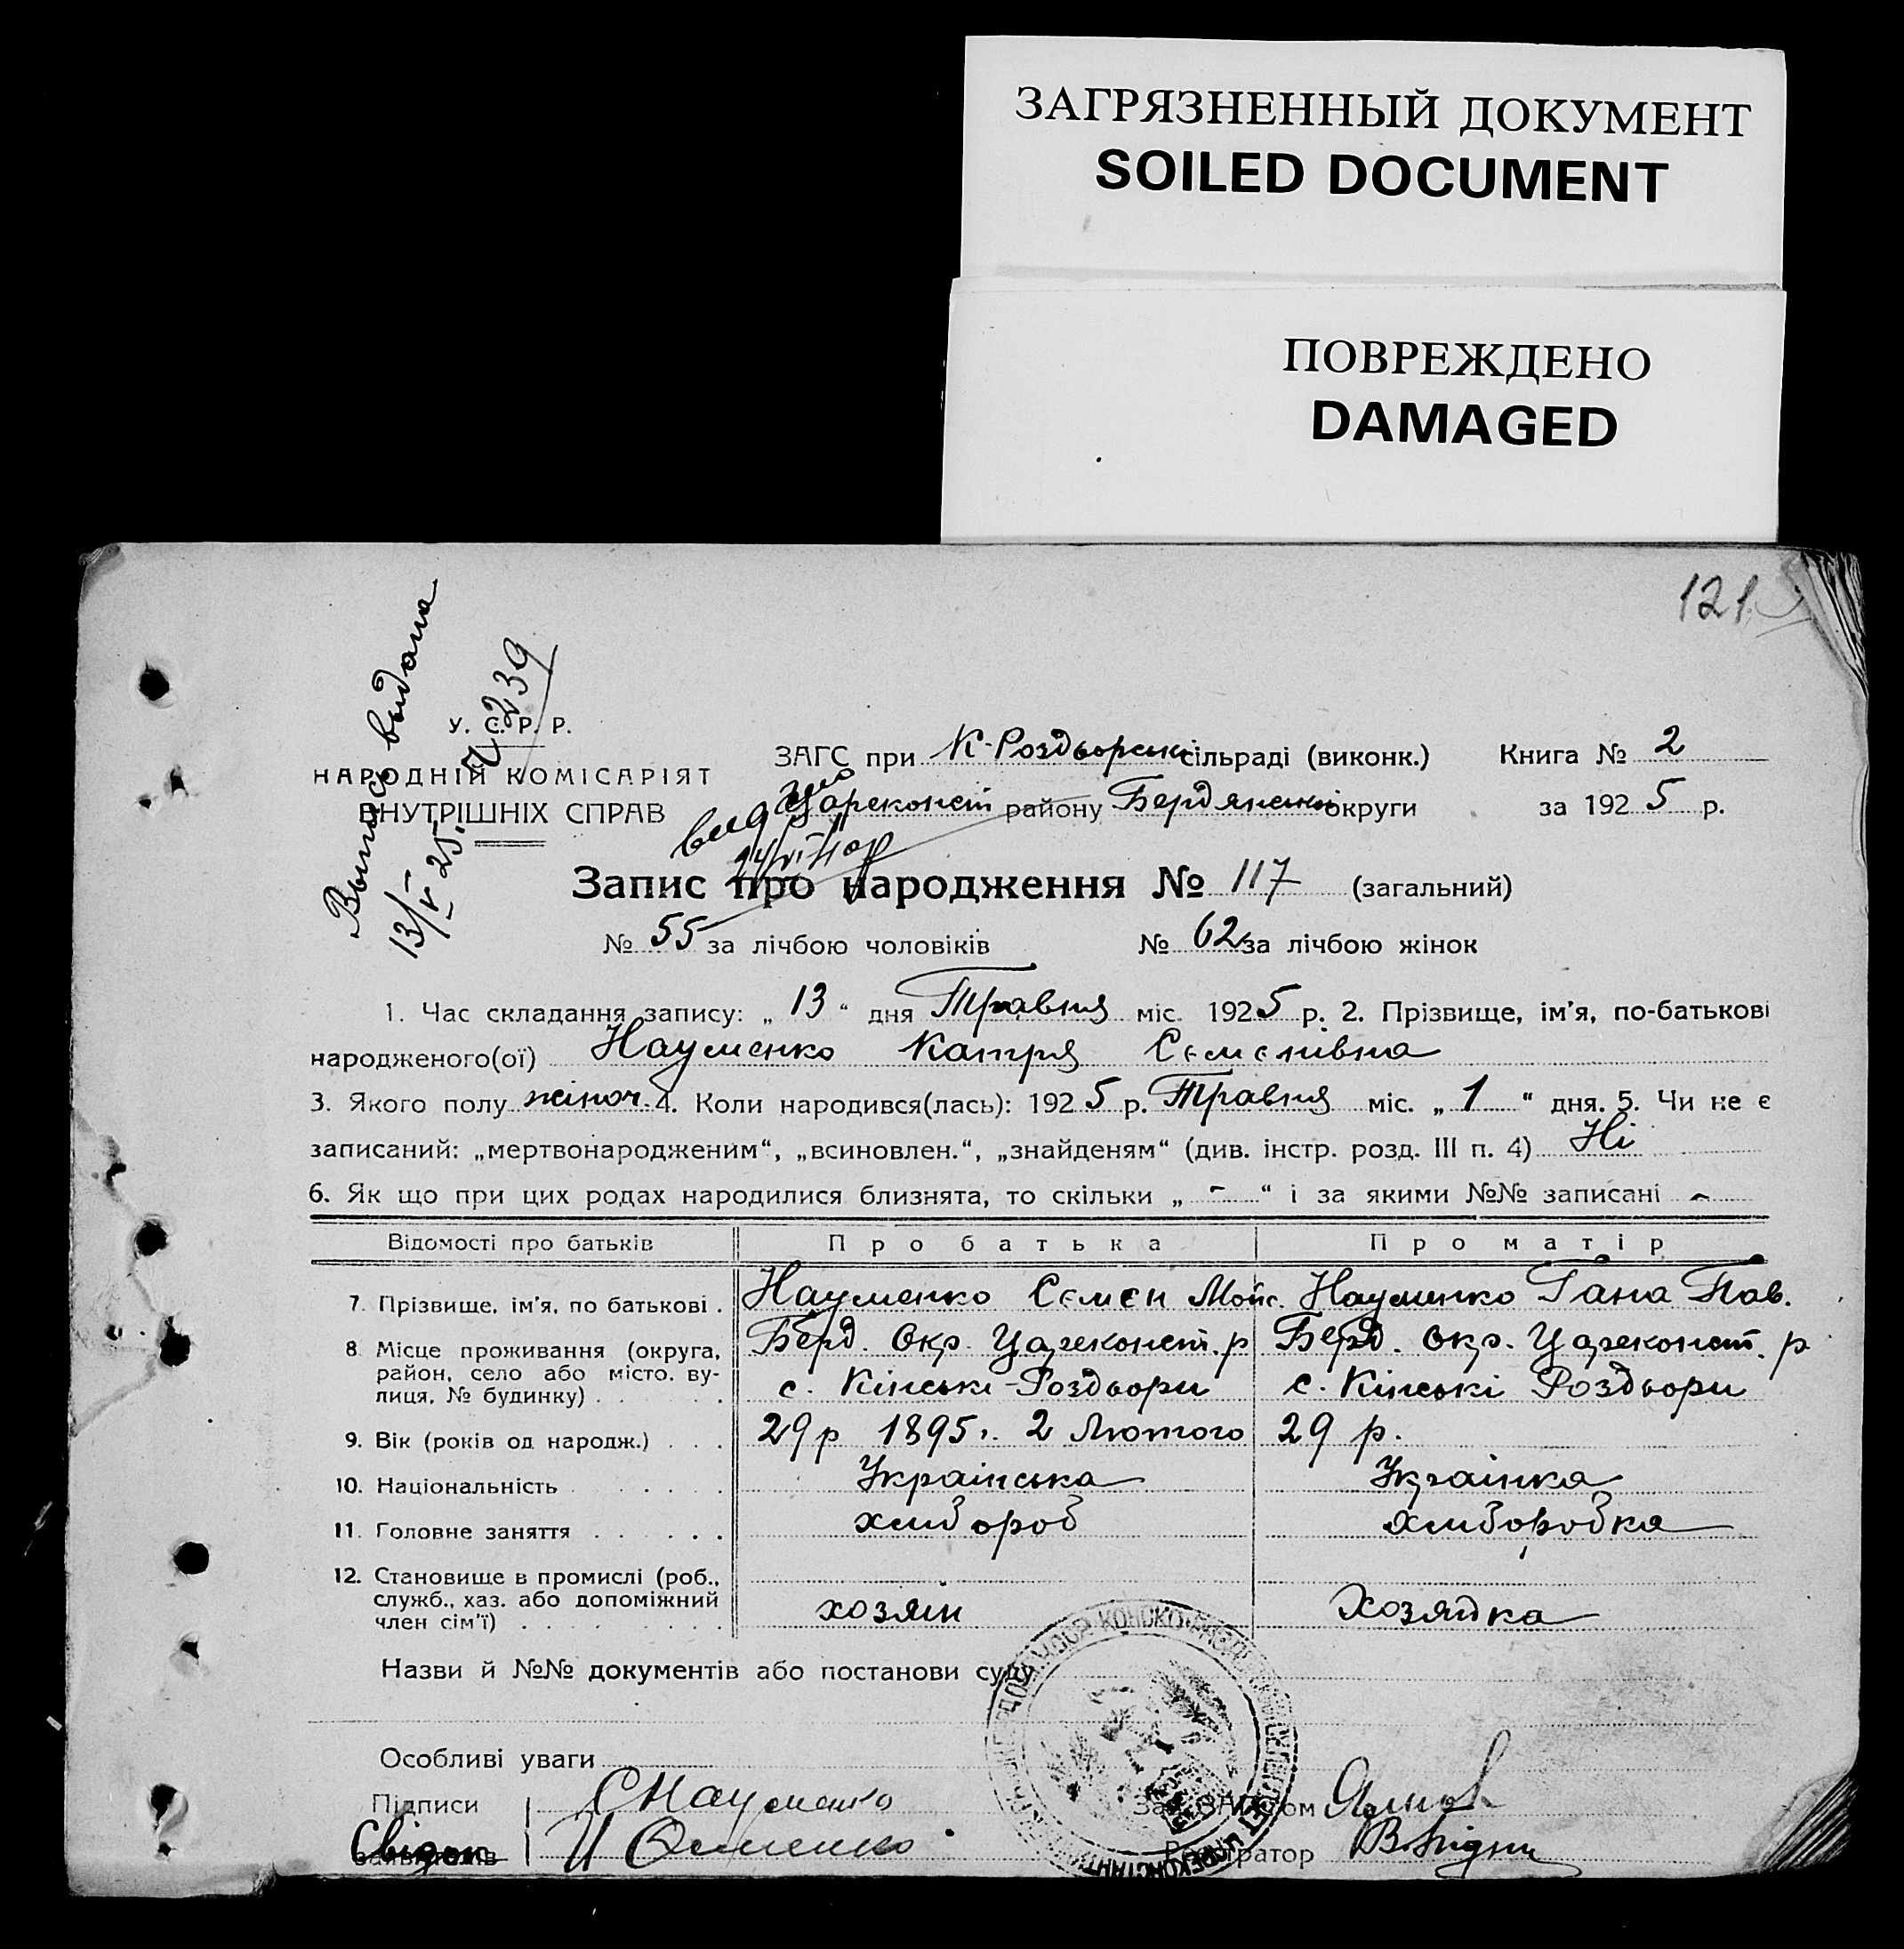 ЗАГРЯЗНЕННЫЙ ДОКУМЕНТ
SOILED DOCUMENT
ПОВРЕЖДЕНО
DAMAGED
121
Выпись выдана
13/V 25. № 239
У. С. Р. Р.
НАРОДНІЙ КОМІСАРІЯТ
ВНУТРІШНІХ СПРАВ
ЗАГС при К-Роздворськ сільраді (виконк.) Книга № 2
Цареконст району Бердянськ округи за 1925 р.
Запис про народження № 117 (загальний)
№ 55 за лічбою чоловіків № 62 за лічбою жінок
1. Час складання запису: „ 13 “ дня Травня міс. 1925 р. 2. Прізвище, ім'я, по-батькові
народженого(ої) Науменко Катря Семенівна
3. Якого полу жіноч. 4. Коли народився(лась): 1925 р. Травня міс. „ 1 “ дня. 5. Чи не є
записаний: „мертвонародженим“, „всиновлен.“, „знайденям“ (див. інстр. розд. III п. 4) Ні
6. Як що при цих родах народилися близнята, то скільки „ - “ і за якими №№ записані -
Відомості про батьків Про батька Про матір
7. Прізвище, ім'я, по батькові . Науменко Семен Мойс. Науменко Гана Пав.
8. Місце проживання (округа, район, село або місто, ву-
лиця, № будинку) . Берд. Окр. Цареконст. р Берд. Окр. Цареконст. р
с. Кінські-Роздори с. Кінські Роздори
9. Вік (років од народж.) . . . 29 р 1895 г. 2 Лютого 29 р.
10. Національність . . . . . Українська Українка
11. Головне заняття . . . . . хлібороб хліборобка
12. Становище в промислі (роб.,
служб., хаз. або допоміжний
член сім'ї) . . . . . . . . . хозяїн Хозяйка
Назви й №№ документів або постанови суду
Особливі уваги
Підписи С Науменко Зав. ЗАГС'ом
Свідок заявителів Реєстратор